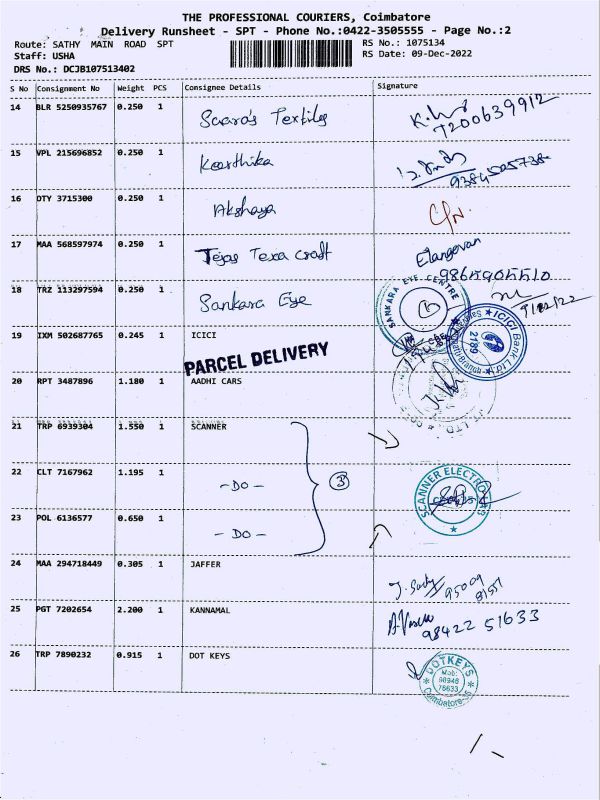 THE PROFESSIONAL COURIERS, Coimbatore
Delivery Runsheet - SPT - Phone No.:0422-3505555 - Page No.:2
Route: SATHY MAIN ROAD SPT RS No.: 1075134
Staff: USHA RS Date: 09-Dec-2022
DRS No.: DCJB107513402
S No Consignment No Weight PCS Consignee Details Signature
14 BLR 5250935767 0.250 1 Saara's Textiles 7200639912
15 VPL 215696852 0.250 1 Keerthika
16 DTY 3715300 0.250 1 Akshaya C/N
17 MAA 568597974 0.250 1 Tejas Texa craft Elangovan
18 TRZ 113297594 0.250 1 Sankara Eye
SANKARA EYE CENTRE
19 IXM 502687765 0.245 1 ICICI
ICICI Bank Ltd. 2189
PARCEL DELIVERY
20 RPT 3487896 1.180 1 AADHI CARS
21 TRP 6939304 1.550 1 SCANNER
22 CLT 7167962 1.195 1 -DO- 3
SCANNER ELECTRO
23 POL 6136577 0.650 1 -DO-
24 MAA 294718449 0.305 1 JAFFER
25 PGT 7202654 2.200 1 KANNAMAL 98422 51633
26 TRP 7890232 0.915 1 DOT KEYS
DOTKEYS
Mob:
90946
76633
Coimbatore-35